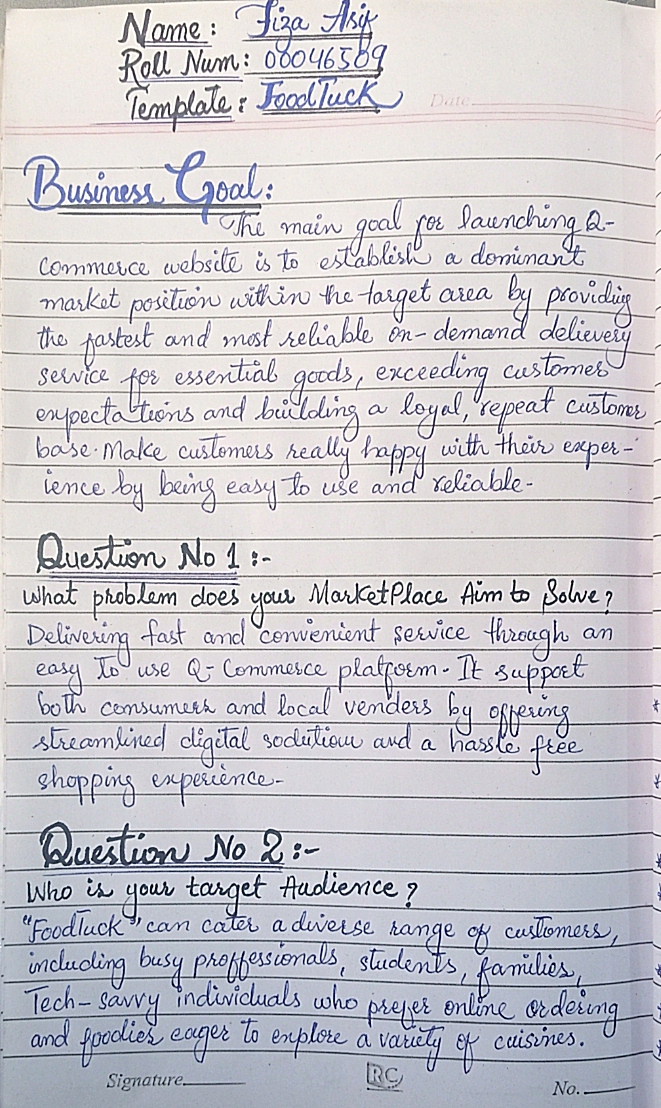 Name: Fiza Asif
Roll Num: 00046509
Template: FoodTuck
Date
Business Goal:
The main goal for launching Q-
Commerce website is to establish a dominant
market position within the target area by providing
the fastest and most reliable on-demand delievery
service for essential goods, exceeding customer
expectations and building a loyal, repeat customer
base. Make customers really happy with their exper-
ience by being easy to use and reliable-
Question No 1 :-
What problem does your MarketPlace Aim to Solve?
Delivering fast and convenient service through an
easy To use Q-Commerce platform. It support
both consumers and local venders by offering
streamlined digital sodution and a hassle free
shopping experience-
Question No 2 :-
Who is your target Audience?
"FoodTuck" can cater a diverse range of customers,
including busy proffessionals, students, families,
Tech-savvy individuals who prefer online ordering
and foodies eager to explore a variety of cuisines.
Signature RC No.